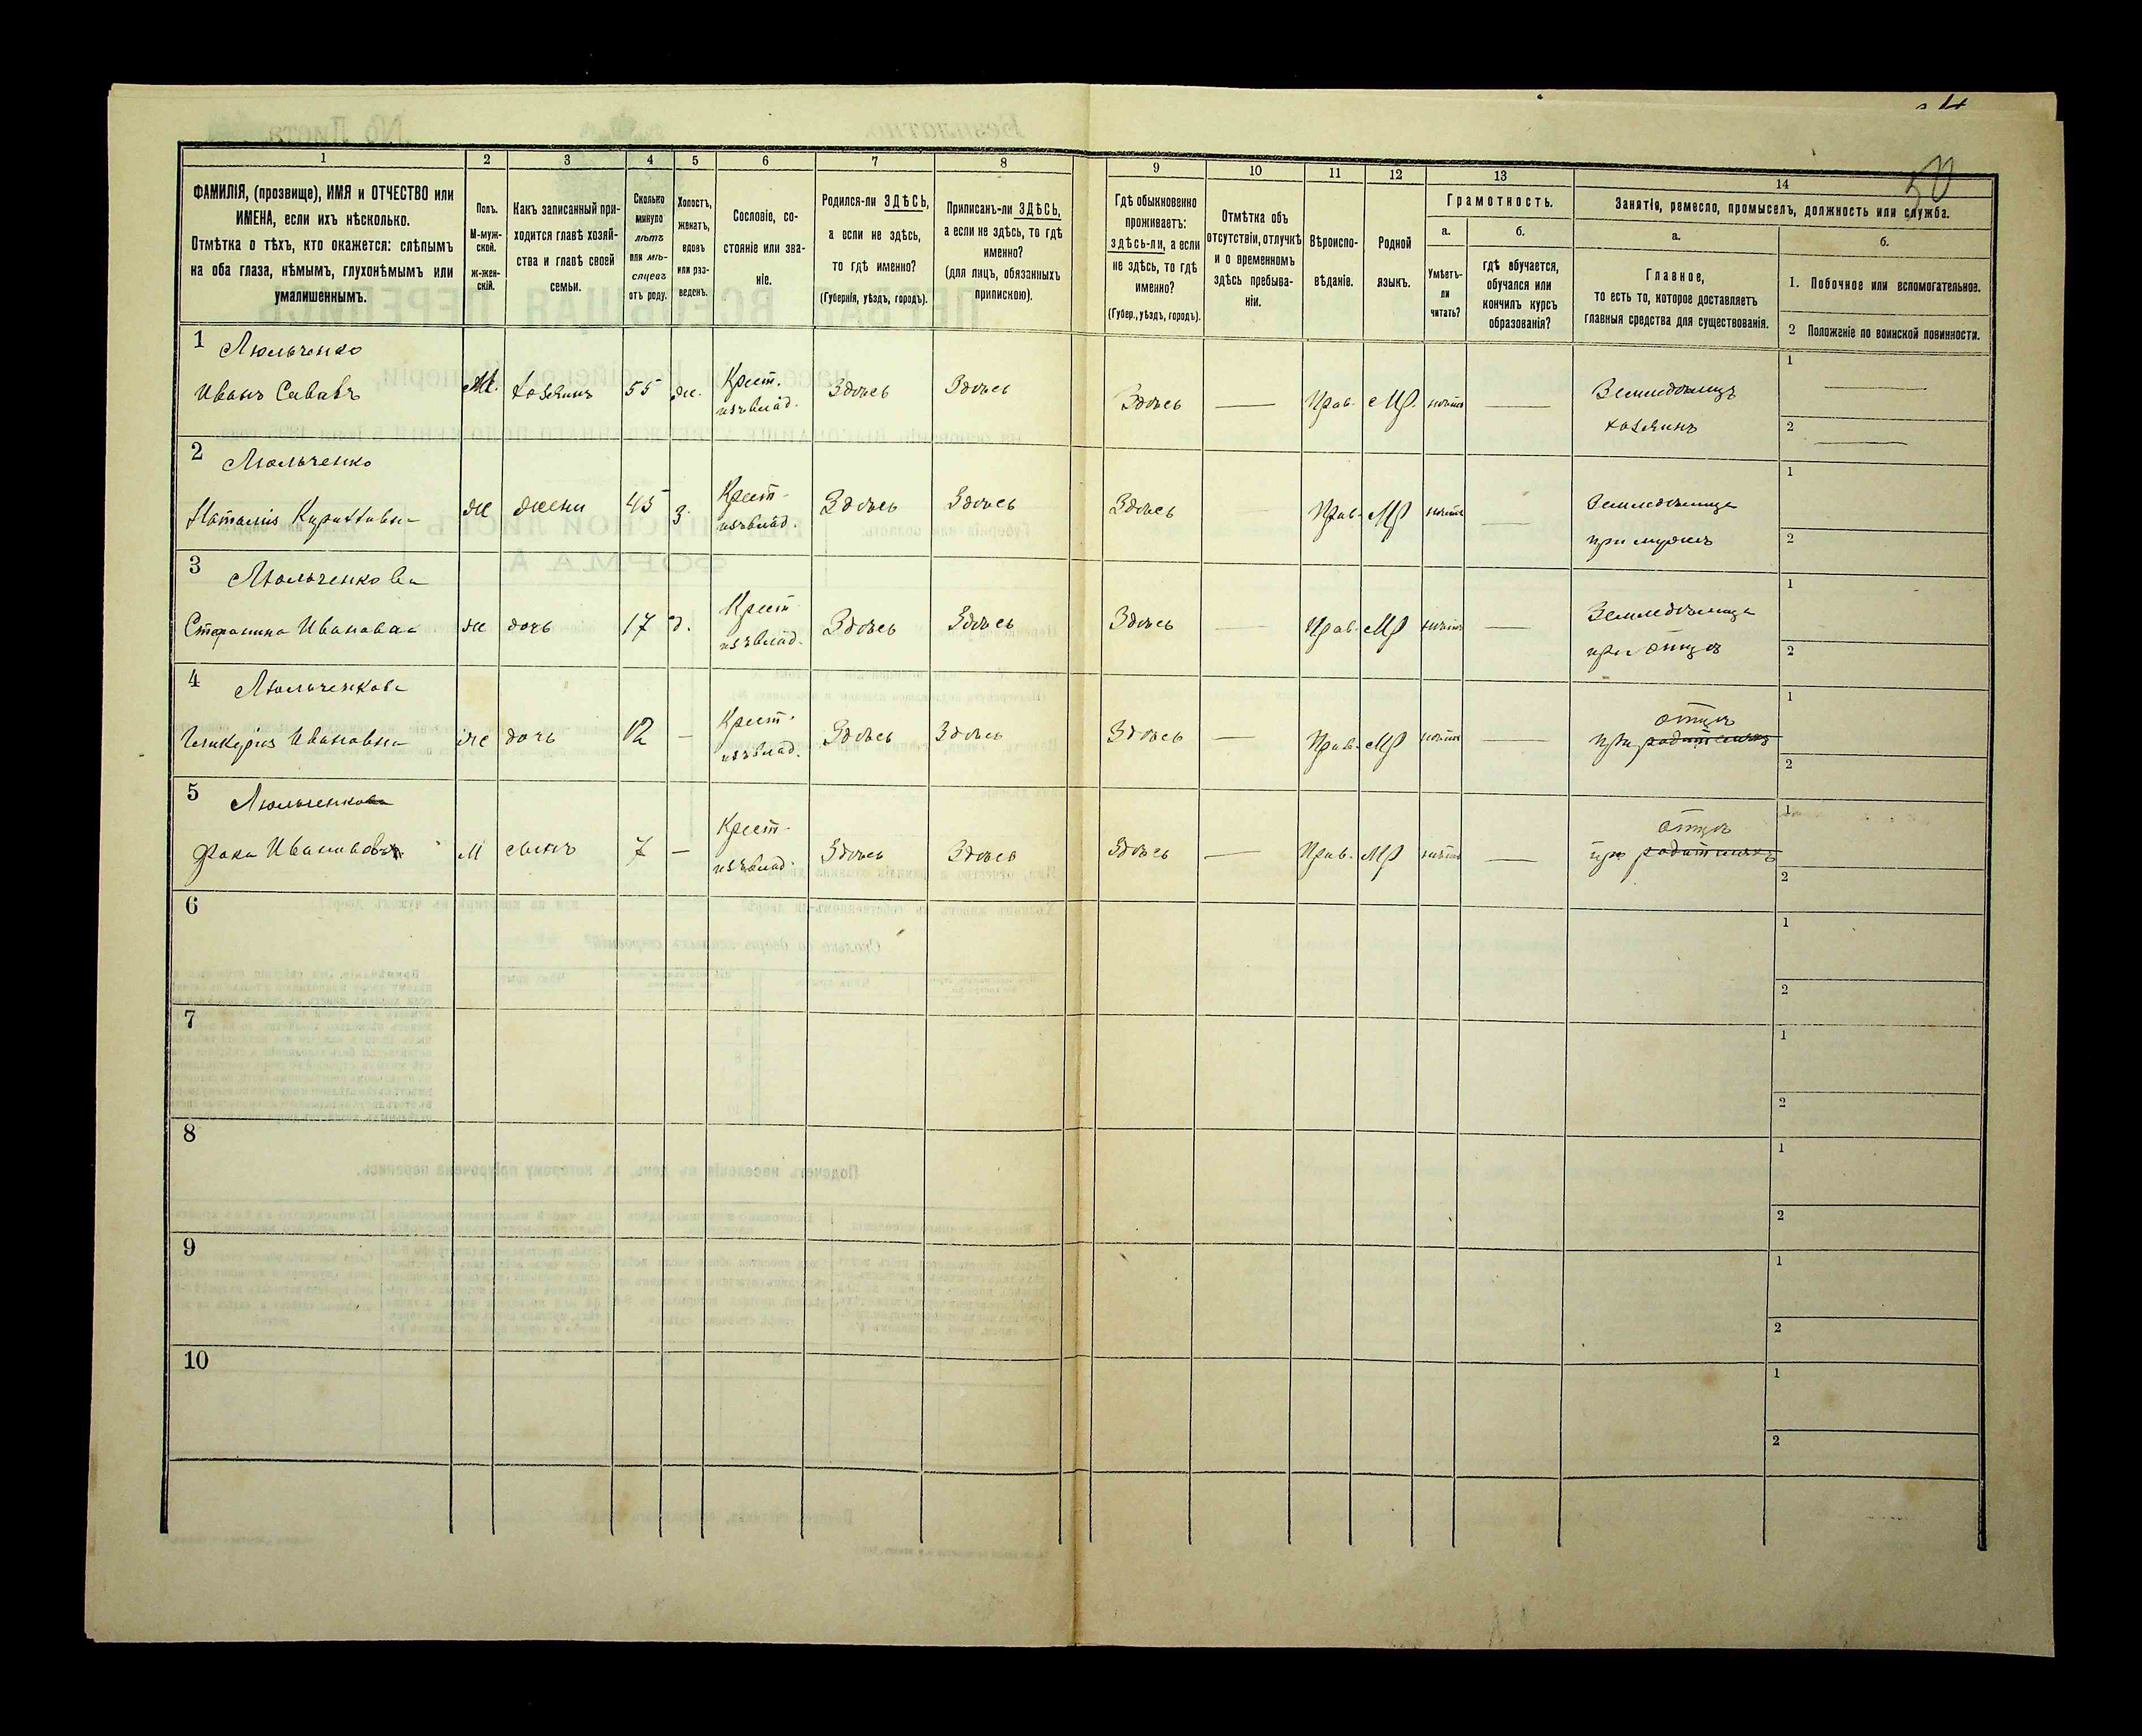 50
1 2 3 4 5 6 7 8 9 10 11 12 13 14
ФАМИЛІЯ, (прозвище), ИМЯ и ОТЧЕСТВО или
ИМЕНА, если ихъ нѣсколько.
Отмѣтка о тѣхъ, кто окажется: слѣпымъ
на оба глаза, нѣмымъ, глухонѣмымъ или
умалишеннымъ.
Полъ.
М-муж-
ской.
ж-жен-
скій.
Какъ записанный при-
ходится главѣ хозяй-
ства и главѣ своей
семьи.
Сколько
минуло
лѣтъ
или мѣ-
сяцевъ
отъ роду.
Холостъ,
женатъ,
вдовъ
или раз-
веденъ.
Сословіе, со-
стояніе или зва-
ніе.
Родился-ли ЗДѢСЬ,
а если не здѣсь,
то гдѣ именно?
(Губернія, уѣздъ, городъ).
Приписанъ-ли ЗДѢСЬ,
а если не здѣсь, то гдѣ
именно?
(для лицъ, обязанныхъ
припискою).
Гдѣ обыкновенно
проживаетъ:
здѣсь-ли, а если
не здѣсь, то гдѣ
именно?
(Губер., уѣздъ, городъ).
Отмѣтка объ
отсутствіи, отлучкѣ
и о временномъ
здѣсь пребыва-
ніи.
Вѣроиспо-
вѣданіе.
Родной
языкъ.
Грамотность.
а.
Умѣетъ-
ли
читать?
б.
гдѣ обучается,
обучался или
кончилъ курсъ
образованія?
Занятіе, ремесло, промыселъ, должность или служба.
а.
Главное,
то есть то, которое доставляетъ
главныя средства для существованія.
б.
1. Побочное или вспомогательное.
2 Положеніе по воинской повинности.
1 Люльченко
Иванъ Саввовъ М. хозяинъ 55 ж. Крест. изъ влад. Здѣсь Здѣсь Здѣсь — Прав. МР. нѣтъ — Земледѣлецъ
хозяинъ
1 —
2 —
2 Люльченко
Наталія жс жена 45 з. Крест. изъ влад. Здѣсь Здѣсь Здѣсь Прав. МР нѣтъ — Земледѣлица
при мужѣ
1
2
3 Люльченкова
Стефанида Иванова ж дочь 17 д. Крест изъ влад. Здѣсь Здѣсь Здѣсь — Прав. МР нѣтъ — Земледѣлица
при отцѣ
1
2
4 Люльченкова
Гликерія Ивановна ж дочь 12 — Крест. изъ влад. Здѣсь Здѣсь Здѣсь — Прав. МР нѣтъ — отцѣ
при родителяхъ
1
2
5 Люльченкова
Фока Ивановъ М сынъ 7 — Крест. изъ влад. Здѣсь Здѣсь Здѣсь — Прав. МР нѣтъ — отцѣ
при родителяхъ
1
2
6
1
2
7
1
2
8
1
2
9
1
2
10
1
2